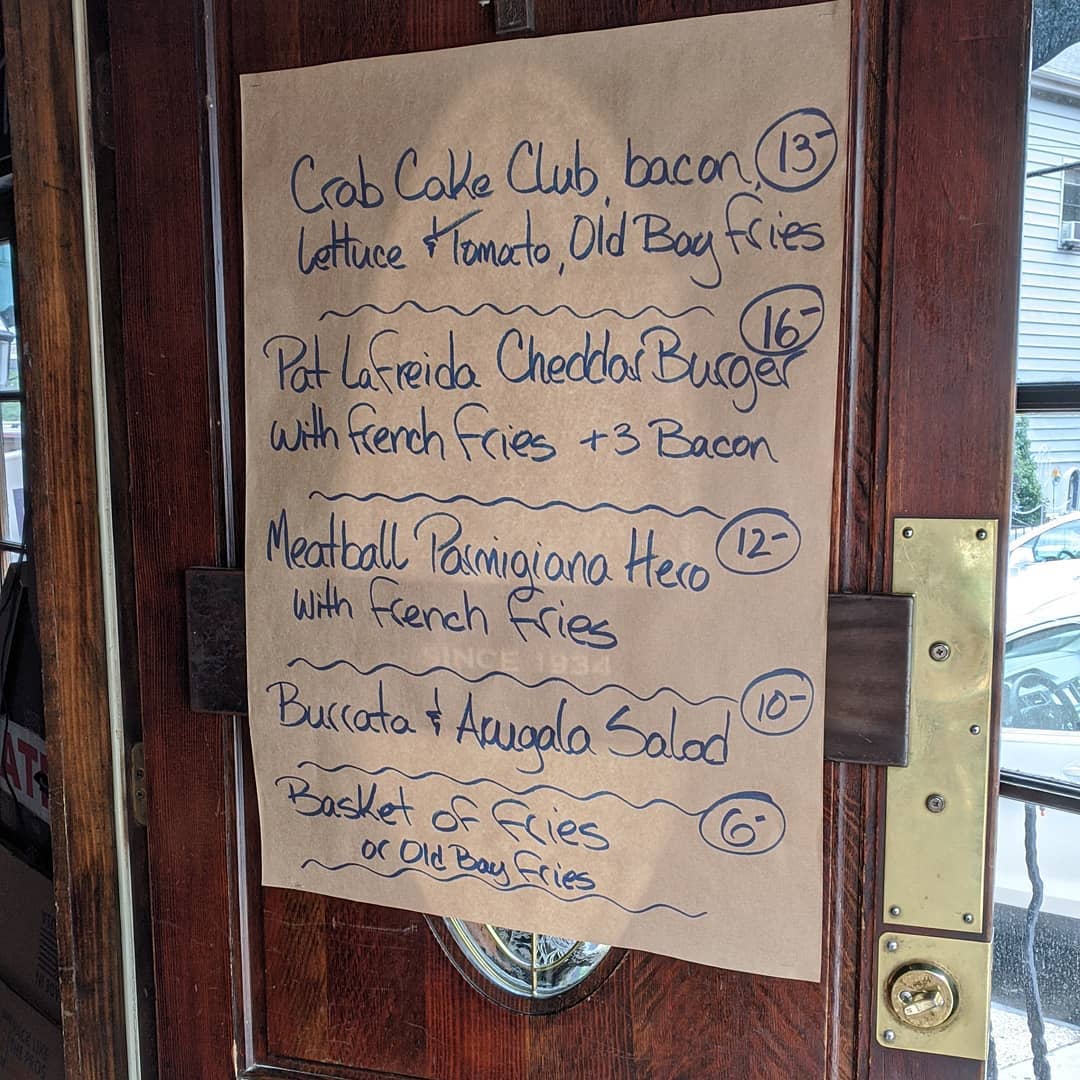 Crab Cake Club, bacon, 13-
Lettuce & Tomato, Old Bay Fries
Pat LaFreida Cheddar Burger 16-
with French Fries +3 Bacon
Meatball Parmigiana Hero 12-
with French Fries
SINCE 1934
Burrata & Arugala Salad 10-
Basket of Fries 6-
or Old Bay Fries